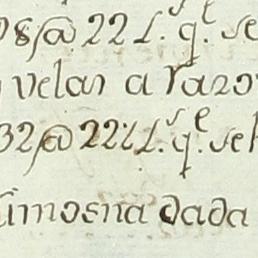 08 @ 22 L.s q.e se
velas a razo
32 @ 22½ L.s q.e se
limosna dada